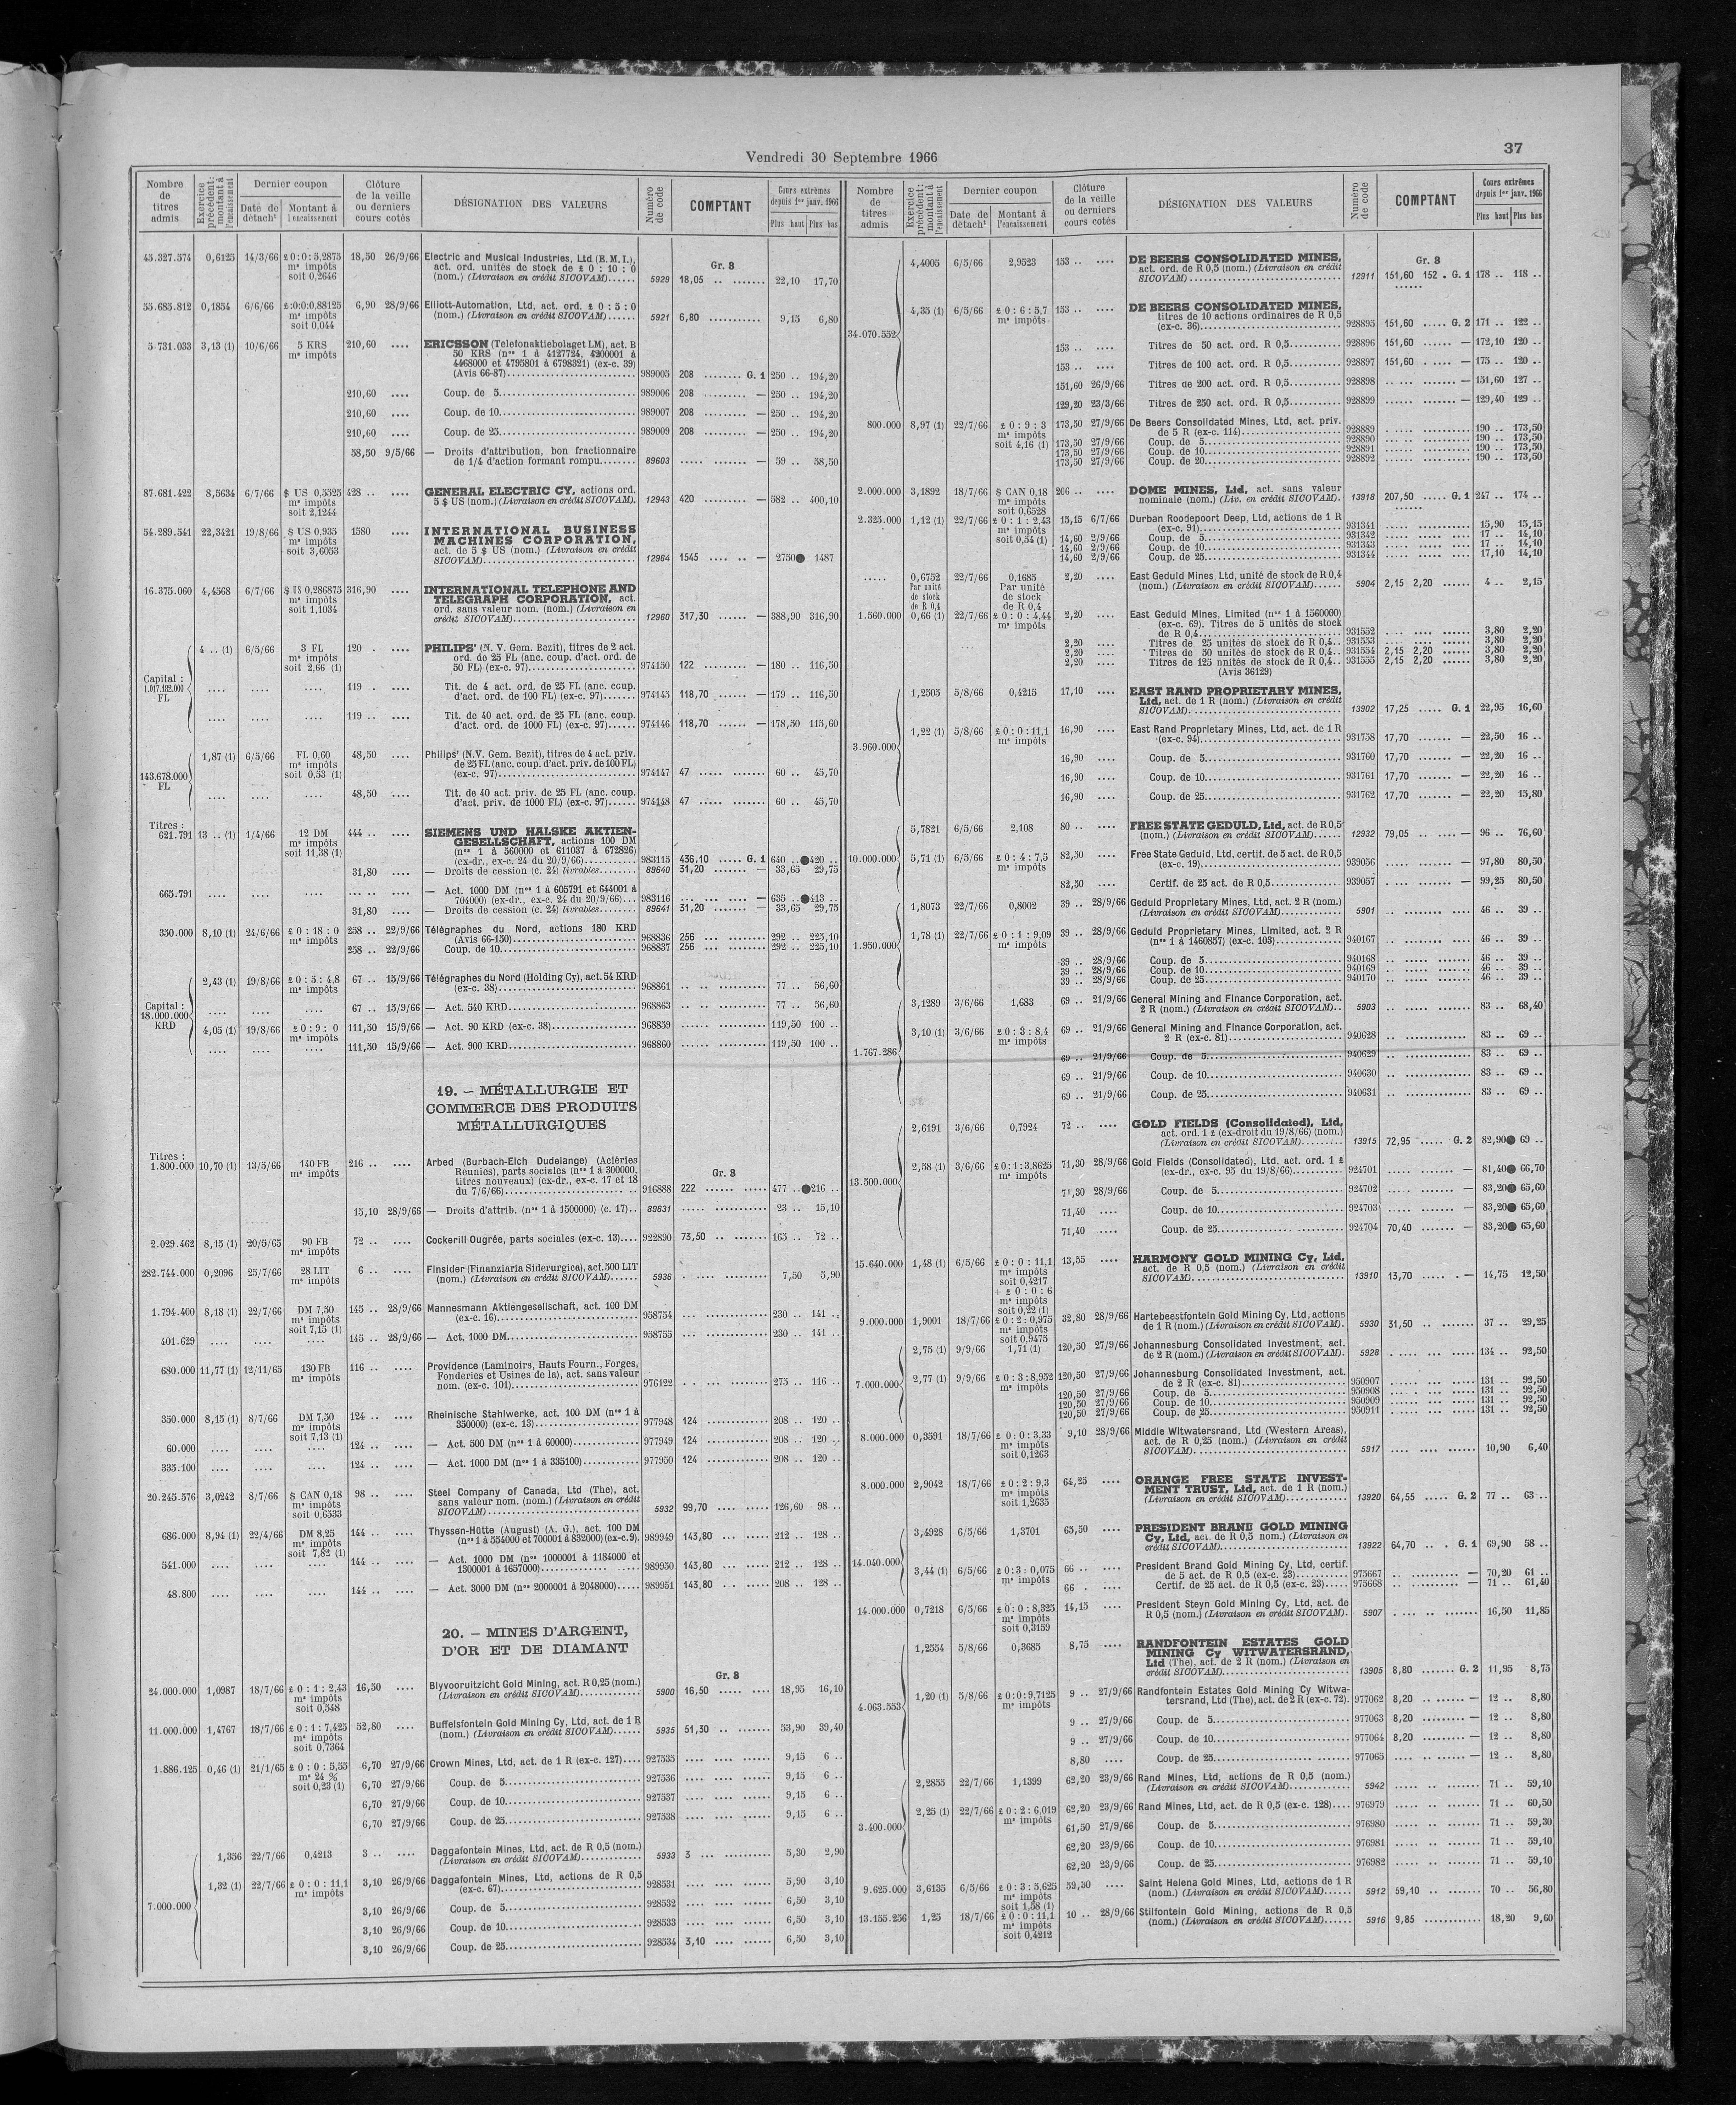 Vendredi 30 Septembre 1966
37
Nombre de titres admis | Exercice précédent: montant à l'encaissement | Dernier coupon: Date de détach^t, Montant à l'encaissement | Clôture de la veille ou derniers cours cotés | DÉSIGNATION DES VALEURS | Numéro de code | COMPTANT | Cours extrêmes depuis 1er janv. 1966: Plus haut, Plus bas
45.327.574 0,6125 14/3/66 £ 0:0:5,2875 18,50 26/9/66 Electric and Musical Industries, Ltd (E.M.I.),
m^s impôts act. ord. unités de stock de £ 0 : 10 : 0 Gr. 8
soit 0,2646 (nom.) (Livraison en crédit SICOVAM)...... 5929 18,05 .. ....... 22,10 17,70
55.685.812 0,1854 6/6/66 £:0:0:0,88125 6,90 28/9/66 Elliott-Automation, Ltd, act. ord. £ 0 : 5 : 0
m^s impôts (nom.) (Livraison en crédit SICOVAM)...... 5921 6,80 ........... 9,15 6,80
soit 0,044
5.731.033 3,13 (1) 10/6/66 5 KRS 210,60 .... ERICSSON (Telefonaktiebolaget LM), act. B
m^s impôts 50 KRS (n^os 1 à 4127724, 4200001 à
4468000 et 4795801 à 6798321) (ex-c. 39)
(Avis 66-87)........ 989005 208 ........ G. 1 250 .. 194,20
210,60 .... Coup. de 5........ 989006 208 ......... — 250 .. 194,20
210,60 .... Coup. de 10........ 989007 208 ......... — 250 .. 194,20
210,60 .... Coup. de 25........ 989009 208 ......... — 250 .. 194,20
58,50 9/5/66 — Droits d'attribution, bon fractionnaire
de 1/4 d'action formant rompu....... 89603 ..... ........ — 59 .. 58,50
87.681.422 8,5634 6/7/66 $ US 0,5525 428 .. .... GENERAL ELECTRIC CY, actions ord.
m^s impôts 5 $ US (nom.) (Livraison en crédit SICOVAM). 12943 420 ......... — 582 .. 400,10
soit 2,1244
54.289.541 22,3421 19/8/66 $ US 0,935 1580 .... INTERNATIONAL BUSINESS
m^s impôts MACHINES CORPORATION,
soit 3,6053 act. de 5 $ US (nom.) (Livraison en crédit
SICOVAM)........ 12964 1545 .... .. — 2750● 1487
16.375.060 4,4568 6/7/66 $ US 0,286875 316,90 .... INTERNATIONAL TELEPHONE AND
m^s impôts TELEGRAPH CORPORATION, act.
soit 1,1034 ord. sans valeur nom. (nom.) (Livraison en
crédit SICOVAM)........ 12960 317,30 ...... — 388,90 316,90
Capital : 1.017.182.000 FL
4 .. (1) 6/5/66 3 FL 120 . .... PHILIPS' (N. V. Gem. Bezit), titres de 2 act.
m^s impôts ord. de 25 FL (anc. coup. d'act. ord. de
soit 2,66 (1) 50 FL) (ex-c. 97)........ 974150 122 ......... — 180 .. 116,50
.... .... .... 119 . .... Tit. de 4 act. ord. de 25 FL (anc. coup.
d'act. ord. de 100 FL) (ex-c. 97)....... 974145 118,70 ...... — 179 .. 116,50
.... .... .... 119 .. .... Tit. de 40 act. ord. de 25 FL (anc. coup.
d'act. ord. de 1000 FL) (ex-c. 97)...... 974146 118,70 ...... — 178,50 115,60
143.678.000 FL
1,87 (1) 6/5/66 FL 0,60 48,50 .... Philips' (N.V. Gem. Bezit), titres de 4 act. priv.
m^s impôts de 25 FL (anc. coup. d'act. priv. de 100 FL)
soit 0,53 (1) (ex-c. 97)........ 974147 47 ..... ....... 60 .. 45,70
.... .... .... 48,50 .... Tit. de 40 act. priv. de 25 FL (anc. coup.
d'act. priv. de 1000 FL) (ex-c. 97)...... 974148 47 ..... ....... 60 .. 45,70
Titres :
621.791 13 .. (1) 1/4/66 12 DM 444 .. .... SIEMENS UND HALSKE AKTIEN-
m^s impôts GESELLSCHAFT, actions 100 DM
soit 11,38 (1) (n^os 1 à 560000 et 611037 à 672826)
(ex-dr., ex-c. 24 du 20/9/66)........ 983115 436,10 ..... G. 1 640 ..●420 ..
31,80 .... — Droits de cession (c. 24) livrables....... 89640 31,20 ....... — 33,65 29,75
665.791 .... .... .... ... .. .... — Act. 1000 DM (n^os 1 à 605791 et 644001 à
704000) (ex-dr., ex-c. 24 du 20/9/66)... 983116 ... ... .... — 635 ..●413 ..
31,80 .... — Droits de cession (c. 24) livrables....... 89641 31,20 ....... — 33,65 29,75
350.000 8,10 (1) 24/6/66 £ 0 : 18 : 0 258 .. 22/9/66 Télégraphes du Nord, actions 180 KRD
m^s impôts (Avis 66-150)........ 968836 256 ... ........ 292 .. 225,10
258 .. 22/9/66 Coup. de 10........ 968837 256 ... ........ 292 .. 225,10
Capital : 18.000.000 KRD
2,43 (1) 19/8/66 £ 0 : 5 : 4,8 67 .. 15/9/66 Télégraphes du Nord (Holding Cy), act. 54 KRD
m^s impôts (ex-c. 38)........ 968861 .. .. ......... 77 .. 56,60
.... .... .... 67 .. 15/9/66 — Act. 540 KRD........ 968863 .. .. ......... 77 .. 56,60
4,05 (1) 19/8/66 £ 0 : 9 : 0 111,50 15/9/66 — Act. 90 KRD (ex-c. 38)........ 968859 ...... ......... 119,50 100 ..
m^s impôts
.... .... .... 111,50 15/9/66 — Act. 900 KRD........ 968860 ...... ......... 119,50 100 ..
19. — MÉTALLURGIE ET
COMMERCE DES PRODUITS
MÉTALLURGIQUES
Titres :
1.800.000 10,70 (1) 13/5/66 140 FB 216 .. .... Arbed (Burbach-Eich Dudelange) (Aciéries
m^s impôts Réunies), parts sociales (n^os 1 à 300000, Gr. 8
titres nouveaux) (ex-dr., ex-c. 17 et 18
du 7/6/66)........ 916888 222 ...... ..... 477 ..●216 ..
15,10 28/9/66 — Droits d'attrib. (n^os 1 à 1500000) (c. 17).. 89631 ..... ........... 23 .. 15,10
2.029.462 8,15 (1) 20/5/65 90 FB 72 .. .... Cockerill Ougrée, parts sociales (ex-c. 13).... 922890 73,50 .. ....... 165 .. 72 ..
m^s impôts
282.744.000 0,2096 25/7/66 28 LIT 6 .. .... Finsider (Finanziaria Siderurgica), act. 500 LIT
m^s impôts (nom.) (Livraison en crédit SICOVAM)...... 5936 . .... ......... 7,50 5,90
1.794.400 8,18 (1) 22/7/66 DM 7,50 145 .. 28/9/66 Mannesmann Aktiengesellschaft, act. 100 DM
m^s impôts (ex-c. 16)........ 958754 .... ........... 230 .. 141 ..
soit 7,15 (1)
401.629 .... .... .... 145 .. 28/9/66 — Act. 1000 DM........ 958755 .... ........... 230 .. 141 ..
680.000 11,77 (1) 12/11/65 130 FB 116 .. .... Providence (Laminoirs, Hauts Fourn., Forges,
m^s impôts Fonderies et Usines de la), act. sans valeur
nom. (ex-c. 101)........ 976122 . . .... ......... 275 .. 116 ..
350.000 8,15 (1) 8/7/66 DM 7,50 124 .. .... Rheinische Stahlwerke, act. 100 DM (n^os 1 à
m^s impôts 350000) (ex-c. 13)........ 977948 124 ............ 208 .. 120 ..
soit 7,13 (1)
60.000 .... .... .... 124 .. .... — Act. 500 DM (n^os 1 à 60000)........ 977949 124 ............ 208 .. 120 ..
335.100 .... .... .... 124 .. .... — Act. 1000 DM (n^os 1 à 335100)........ 977950 124 ............ 208 .. 120 ..
20.245.576 3,0242 8/7/66 $ CAN 0,18 98 .. .... Steel Company of Canada, Ltd (The), act.
m^s impôts sans valeur nom. (nom.) (Livraison en crédit
soit 0,6533 SICOVAM)........ 5932 99,70 .... ...... 126,60 98 ..
686.000 8,94 (1) 22/4/66 DM 8,25 144 .. .... Thyssen-Hütte (August) (A. G.), act. 100 DM
m^s impôts (n^os 1 à 554000 et 700001 à 832000) (ex-c. 9). 989949 143,80 ... ...... 212 .. 128 ..
soit 7,82 (1)
541.000 .... .... .... 144 .. .... — Act. 1000 DM (n^os 1000001 à 1184000 et
1300001 à 1657000)........ 989950 143,80 ... ...... 212 .. 128 ..
48.800 .... .... .... 144 .. .... — Act. 3000 DM (n^os 2000001 à 2048000)..... 989951 143,80 . . . ...... 208 .. 128 ..
20. — MINES D'ARGENT,
D'OR ET DE DIAMANT
Gr. 8
24.000.000 1,0987 18/7/66 £ 0 : 1 : 2,43 16,50 .... Blyvooruitzicht Gold Mining, act. R 0,25 (nom.)
m^s impôts (Livraison en crédit SICOVAM)........ 5900 16,50 ..... .... 18,95 16,10
soit 0,548
11.000.000 1,4767 18/7/66 £ 0 : 1 : 7,425 52,80 .... Buffelsfontein Gold Mining Cy, Ltd, act. de 1 R
m^s impôts (nom.) (Livraison en crédit SICOVAM)...... 5935 51,30 .. ....... 53,90 39,40
soit 0,7364
1.886.125 0,46 (1) 21/1/65 £ 0 : 0 : 5,55 6,70 27/9/66 Crown Mines, Ltd, act. de 1 R (ex-c. 127).... 927535 .... .... ...... 9,15 6 ..
m^s 24 %
soit 0,23 (1) 6,70 27/9/66 Coup. de 5........ 927536 .... .... ...... 9,15 6 ..
6,70 27/9/66 Coup. de 10........ 927537 .... .... ...... 9,15 6 ..
6,70 27/9/66 Coup. de 25........ 927538 .... .... ...... 9,15 6 ..
7.000.000
1,356 22/7/66 0,4213 3 .. .... Daggafontein Mines, Ltd, act. de R 0,5 (nom.)
(Livraison en crédit SICOVAM)........ 5933 3 ... .......... 5,30 2,90
1,32 (1) 22/7/66 £ 0 : 0 : 11,1 3,10 26/9/66 Daggafontein Mines, Ltd, actions de R 0,5
m^s impôts (ex-c. 67)........ 928531 .... .... ...... 5,90 3,10
3,10 26/9/66 Coup. de 5........ 928532 .... .... ...... 6,50 3,10
3,10 26/9/66 Coup. de 10........ 928533 .... .... ...... 6,50 3,10
3,10 26/9/66 Coup. de 25........ 928534 3,10 .... ...... 6,50 3,10
Nombre de titres admis | Exercice précédent: montant à l'encaissement | Dernier coupon: Date de détach^t, Montant à l'encaissement | Clôture de la veille ou derniers cours cotés | DÉSIGNATION DES VALEURS | Numéro de code | COMPTANT | Cours extrêmes depuis 1er janv. 1966: Plus haut, Plus bas
34.070.552
4,4005 6/5/66 2,9523 153 .. .... DE BEERS CONSOLIDATED MINES,
act. ord. de R 0,5 (nom.) (Livraison en crédit Gr. 8
SICOVAM)........ 12911 151,60 152 . G. 1 178 .. 118 ..
4,35 (1) 6/5/66 £ 0 : 6 : 5,7 153 .. .... DE BEERS CONSOLIDATED MINES,
m^s impôts titres de 10 actions ordinaires de R 0,5
(ex-c. 36)........ 928895 151,60 ..... G. 2 171 .. 122 ..
153 .. .... Titres de 50 act. ord. R 0,5........ 928896 151,60 ...... — 172,10 120 ..
153 .. .... Titres de 100 act. ord. R 0,5........ 928897 151,60 . .... — 175 .. 120 ..
151,60 26/9/66 Titres de 200 act. ord. R 0,5........ 928898 .. ... ....... — 151,60 127 ..
129,20 23/3/66 Titres de 250 act. ord. R 0,5........ 928899 ...... ....... — 129,40 129 ..
800.000 8,97 (1) 22/7/66 £ 0 : 9 : 3 173,50 27/9/66 De Beers Consolidated Mines, Ltd, act. priv.
m^s impôts de 5 R (ex-c. 114)........ 928889 ..... ... ....... 190 .. 173,50
soit 4,16 (1) 173,50 27/9/66 Coup. de 5........ 928890 ..... ... ....... 190 .. 173,50
173,50 27/9/66 Coup. de 10........ 928891 ..... ... ....... 190 .. 173,50
173,50 27/9/66 Coup. de 20........ 928892 ..... ... ....... 190 .. 173,50
2.000.000 3,1892 18/7/66 $ CAN 0,18 206 .. .... DOME MINES, Ltd, act. sans valeur
m^s impôts nominale (nom.) (Liv. en crédit SICOVAM). 13918 207,50 ..... G. 1 247 .. 174 ..
soit 0,6528
2.325.000 1,12 (1) 22/7/66 £ 0 : 1 : 2,43 15,15 6/7/66 Durban Roodepoort Deep, Ltd, actions de 1 R
m^s impôts (ex-c. 91)........ 931341 .... ..... .... 15,90 15,15
soit 0,54 (1) 14,60 2/9/66 Coup. de 5........ 931342 .... ..... .... 17 .. 14,10
14,60 2/9/66 Coup. de 10........ 931343 .... ..... .... 17 .. 14,10
14,60 2/9/66 Coup. de 25........ 931344 .... ..... .... 17,10 14,10
..... 0,6752 22/7/66 0,1685 2,20 .... East Geduld Mines, Ltd, unité de stock de R 0,4
Par unité de stock de R 0,4 Par unité de stock de R 0,4 (nom.) (Livraison en crédit SICOVAM)...... 5904 2,15 2,20 ...... 4 .. 2,15
1.560.000 0,66 (1) 22/7/66 £ 0 : 0 : 4,44 2,20 .... East Geduld Mines, Limited (n^os 1 à 1560000)
m^s impôts (ex-c. 69). Titres de 5 unités de stock
de R 0,4........ 931552 ... .... ...... 3,80 2,20
2,20 .... Titres de 25 unités de stock de R 0,4.. 931553 ... .... ...... 3,80 2,20
2,20 .... Titres de 50 unités de stock de R 0,4.. 931554 2,15 2,20 ...... 3,80 2,20
2,20 .... Titres de 125 nnités de stock de R 0,4.. 931555 2,15 2,20 ...... 3,80 2,20
(Avis 36129)
3.960.000
1,2505 5/8/66 0,4215 17,10 .... EAST RAND PROPRIETARY MINES,
Ltd, act. de 1 R (nom.) (Livraison en crédit
SICOVAM)........ 13902 17,25 ..... G. 1 22,95 16,60
1,22 (1) 5/8/66 £ 0 : 0 : 11,1 16,90 .... East Rand Proprietary Mines, Ltd, act. de 1 R
m^s impôts (ex-c. 94)........ 931758 17,70 ....... — 22,50 16 ..
16,90 .... Coup. de 5........ 931760 17,70 ....... — 22,20 16 ..
16,90 .... Coup. de 10........ 931761 17,70 ....... — 22,20 16 ..
16,90 .... Coup. de 25........ 931762 17,70 ....... — 22,20 15,80
10.000.000
5,7821 6/5/66 2,108 80 .. .... FREE STATE GEDULD, Ltd, act. de R 0,5
(nom.) (Livraison en crédit SICOVAM)...... 12932 79,05 .. .... — 96 .. 76,60
5,71 (1) 6/5/66 £ 0 : 4 : 7,5 82,50 .... Free State Geduld, Ltd, certif. de 5 act. de R 0,5
m^s impôts (ex-c. 19)........ 939056 .... ......... — 97,80 80,50
82,50 .... Certif. de 25 act. de R 0,5........ 939057 . ... ......... — 99,25 80,50
1.950.000
1,8073 22/7/66 0,8002 39 .. 28/9/66 Geduld Proprietary Mines, Ltd, act. 2 R (nom.)
(Livraison en crédit SICOVAM)........ 5901 .. ........ .... 46 .. 39 ..
1,78 (1) 22/7/66 £ 0 : 1 : 9,09 39 .. 28/9/66 Geduld Proprietary Mines, Limited, act. 2 R
m^s impôts (n^os 1 à 1460857) (ex-c. 103)........ 940167 .. ..... ....... 46 .. 39 ..
39 .. 28/9/66 Coup. de 5........ 940168 .. ..... ....... 46 .. 39 ..
39 .. 28/9/66 Coup. de 10........ 940169 .. ..... ....... 46 .. 39 ..
39 .. 28/9/66 Coup. de 25........ 940170 .. ..... ....... 46 .. 39 ..
1.767.286
3,1289 3/6/66 1,683 69 .. 21/9/66 General Mining and Finance Corporation, act.
2 R (nom.) (Livraison en crédit SICOVAM).. 5903 .. .... ......... 83 .. 68,40
3,10 (1) 3/6/66 £ 0 : 3 : 8,4 69 .. 21/9/66 General Mining and Finance Corporation, act.
m^s impôts 2 R (ex-c. 81)........ 940628 .. ............. 83 .. 69 ..
69 .. 21/9/66 Coup. de 5........ 940629 .. ............. 83 .. 69 ..
69 .. 21/9/66 Coup. de 10........ 940630 .. ............. 83 .. 69 ..
69 .. 21/9/66 Coup. de 25........ 940631 .. ............. 83 .. 69 ..
13.500.000
2,6191 3/6/66 0,7924 72 .. .... GOLD FIELDS (Consolidated), Ltd,
act. ord. 1 £ (ex-droit du 19/8/66) (nom.)
(Livraison en crédit SICOVAM)........ 13915 72,95 ..... G. 2 82,90● 69 ..
2,58 (1) 3/6/66 £ 0 : 1 : 3,8625 71,30 28/9/66 Gold Fields (Consolidated), Ltd, act. ord. 1 £
m^s impôts (ex-dr., ex-c. 95 du 19/8/66)........ 924701 ..... ....... — 81,40● 66,70
71,30 28/9/66 Coup. de 5........ 924702 ..... ....... — 83,20● 65,60
71,40 .... Coup. de 10........ 924703 ..... ....... — 83,20● 65,60
71,40 .... Coup. de 25........ 924704 70,40 ....... — 83,20● 65,60
15.640.000 1,48 (1) 6/5/66 £ 0 : 0 : 11,1 13,55 .... HARMONY GOLD MINING Cy, Ltd,
m^s impôts act. de R 0,5 (nom.) (Livraison en crédit
soit 0,4217 SICOVAM)........ 13910 13,70 ..... . — 14,75 12,50
+ £ 0 : 0 : 6
m^s impôts
soit 0,22 (1)
9.000.000 1,9001 18/7/66 £ 0 : 2 : 0,975 32,80 28/9/66 Hartebeestfontein Gold Mining Cy, Ltd, actions
m^s impôts de 1 R (nom.) (Livraison en crédit SICOVAM). 5930 31,50 .. ....... 37 .. 29,25
soit 0,9475
7.000.000
2,75 (1) 9/9/66 1,71 (1) 120,50 27/9/66 Johannesburg Consolidated Investment, act.
de 2 R (nom.) (Livraison en crédit SICOVAM). 5928 . .... ... ..... 134 .. 92,50
2,77 (1) 9/9/66 £ 0 : 3 : 8,952 120,50 27/9/66 Johannesburg Consolidated Investment, act.
m^s impôts de 2 R (ex-c. 81)........ 950907 ..... ... ..... 131 .. 92,50
120,50 27/9/66 Coup. de 5........ 950908 ..... ... ..... 131 .. 92,50
120,50 27/9/66 Coup. de 10........ 950909 ..... ... ..... 131 .. 92,50
120,50 27/9/66 Coup. de 25........ 950911 ..... ... ..... 131 .. 92,50
8.000.000 0,3591 18/7/66 £ 0 : 0 : 3,33 9,10 28/9/66 Middle Witwatersrand, Ltd (Western Areas),
m^s impôts act. de R 0,25 (nom.) (Livraison en crédit
soit 0,1263 SICOVAM)........ 5917 .... .... ...... 10,90 6,40
8.000.000 2,9042 18/7/66 £ 0 : 2 : 9,3 64,25 .... ORANGE FREE STATE INVEST-
m^s impôts MENT TRUST, Ltd, act. de 1 R (nom.)
soit 1,2635 (Livraison en crédit SICOVAM)........ 13920 64,55 ..... G. 2 77 .. 63 ..
14.040.000
3,4928 6/5/66 1,3701 65,50 .... PRESIDENT BRAND GOLD MINING
Cy, Ltd, act. de R 0,5 nom.) (Livraison en
crédit SICOVAM)........ 13922 64,70 .. . G. 1 69,90 58 ..
3,44 (1) 6/5/66 £ 0 : 3 : 0,075 66 .. .... President Brand Gold Mining Cy, Ltd, certif.
m^s impôts de 5 act. de R 0,5 (ex-c. 23)........ 975667 .. ........... — 70,20 61 ..
66 . .... Certif. de 25 act. de R 0,5 (ex-c. 23)..... 975668 .. ........... — 71 .. 61,40
14.000.000 0,7218 6/5/66 £ 0 : 0 : 8,325 14,15 .... President Steyn Gold Mining Cy, Ltd, act. de
m^s impôts R 0,5 (nom.) (Livraison en crédit SICOVAM). 5907 . ... .. ....... 16,50 11,85
soit 0,3159
4.063.553
1,2554 5/8/66 0,3685 8,75 .... RANDFONTEIN ESTATES GOLD
MINING Cy WITWATERSRAND,
Ltd (The), act. de 2 R (nom.) (Livraison en
crédit SICOVAM)........ 13905 8,80 ....... G. 2 11,95 8,75
1,20 (1) 5/8/66 £ 0 : 0 : 9,7125 9 .. 27/9/66 Randfontein Estates Gold Mining Cy Witwa-
m^s impôts tersrand, Ltd (The), act. de 2 R (ex-c. 72). 977062 8,20 .. ...... — 12 .. 8,80
9 .. 27/9/66 Coup. de 5........ 977063 8,20 ......... — 12 .. 8,80
9 .. 27/9/66 Coup. de 10........ 977064 8,20 ......... — 12 .. 8,80
8,80 .... Coup. de 25........ 977065 .... ......... — 12 .. 8,80
3.400.000
2,2855 22/7/66 1,1399 62,20 23/9/66 Rand Mines, Ltd, actions de R 0,5 (nom.)
(Livraison en crédit SICOVAM)........ 5942 ..... .. ...... 71 .. 59,10
2,25 (1) 22/7/66 £ 0 : 2 : 6,019 62,20 23/9/66 Rand Mines, Ltd, act. de R 0,5 (ex-c. 128).... 976979 ..... .. ...... 71 .. 60,50
m^s impôts 61,50 27/9/66 Coup. de 5........ 976980 ..... .. ...... 71 .. 59,30
62,20 23/9/66 Coup. de 10........ 976981 ..... .. ...... 71 .. 59,10
62,20 23/9/66 Coup. de 25........ 976982 ..... .. ...... 71 .. 59,10
9.625.000 3,6135 6/5/66 £ 0 : 3 : 5,625 59,50 .... Saint Helena Gold Mines, Ltd, actions de 1 R
m^s impôts (nom.) (Livraison en crédit SICOVAM)...... 5912 59,10 .. ....... 70 .. 56,80
soit 1,58 (1)
13.155.256 1,25 18/7/66 £ 0 : 0 : 11,1 10 .. 28/9/66 Stilfontein Gold Mining, actions de R 0,5
m^s impôts (nom.) (Livraison en crédit SICOVAM)...... 5916 9,85 ........... 18,20 9,60
soit 0,4212